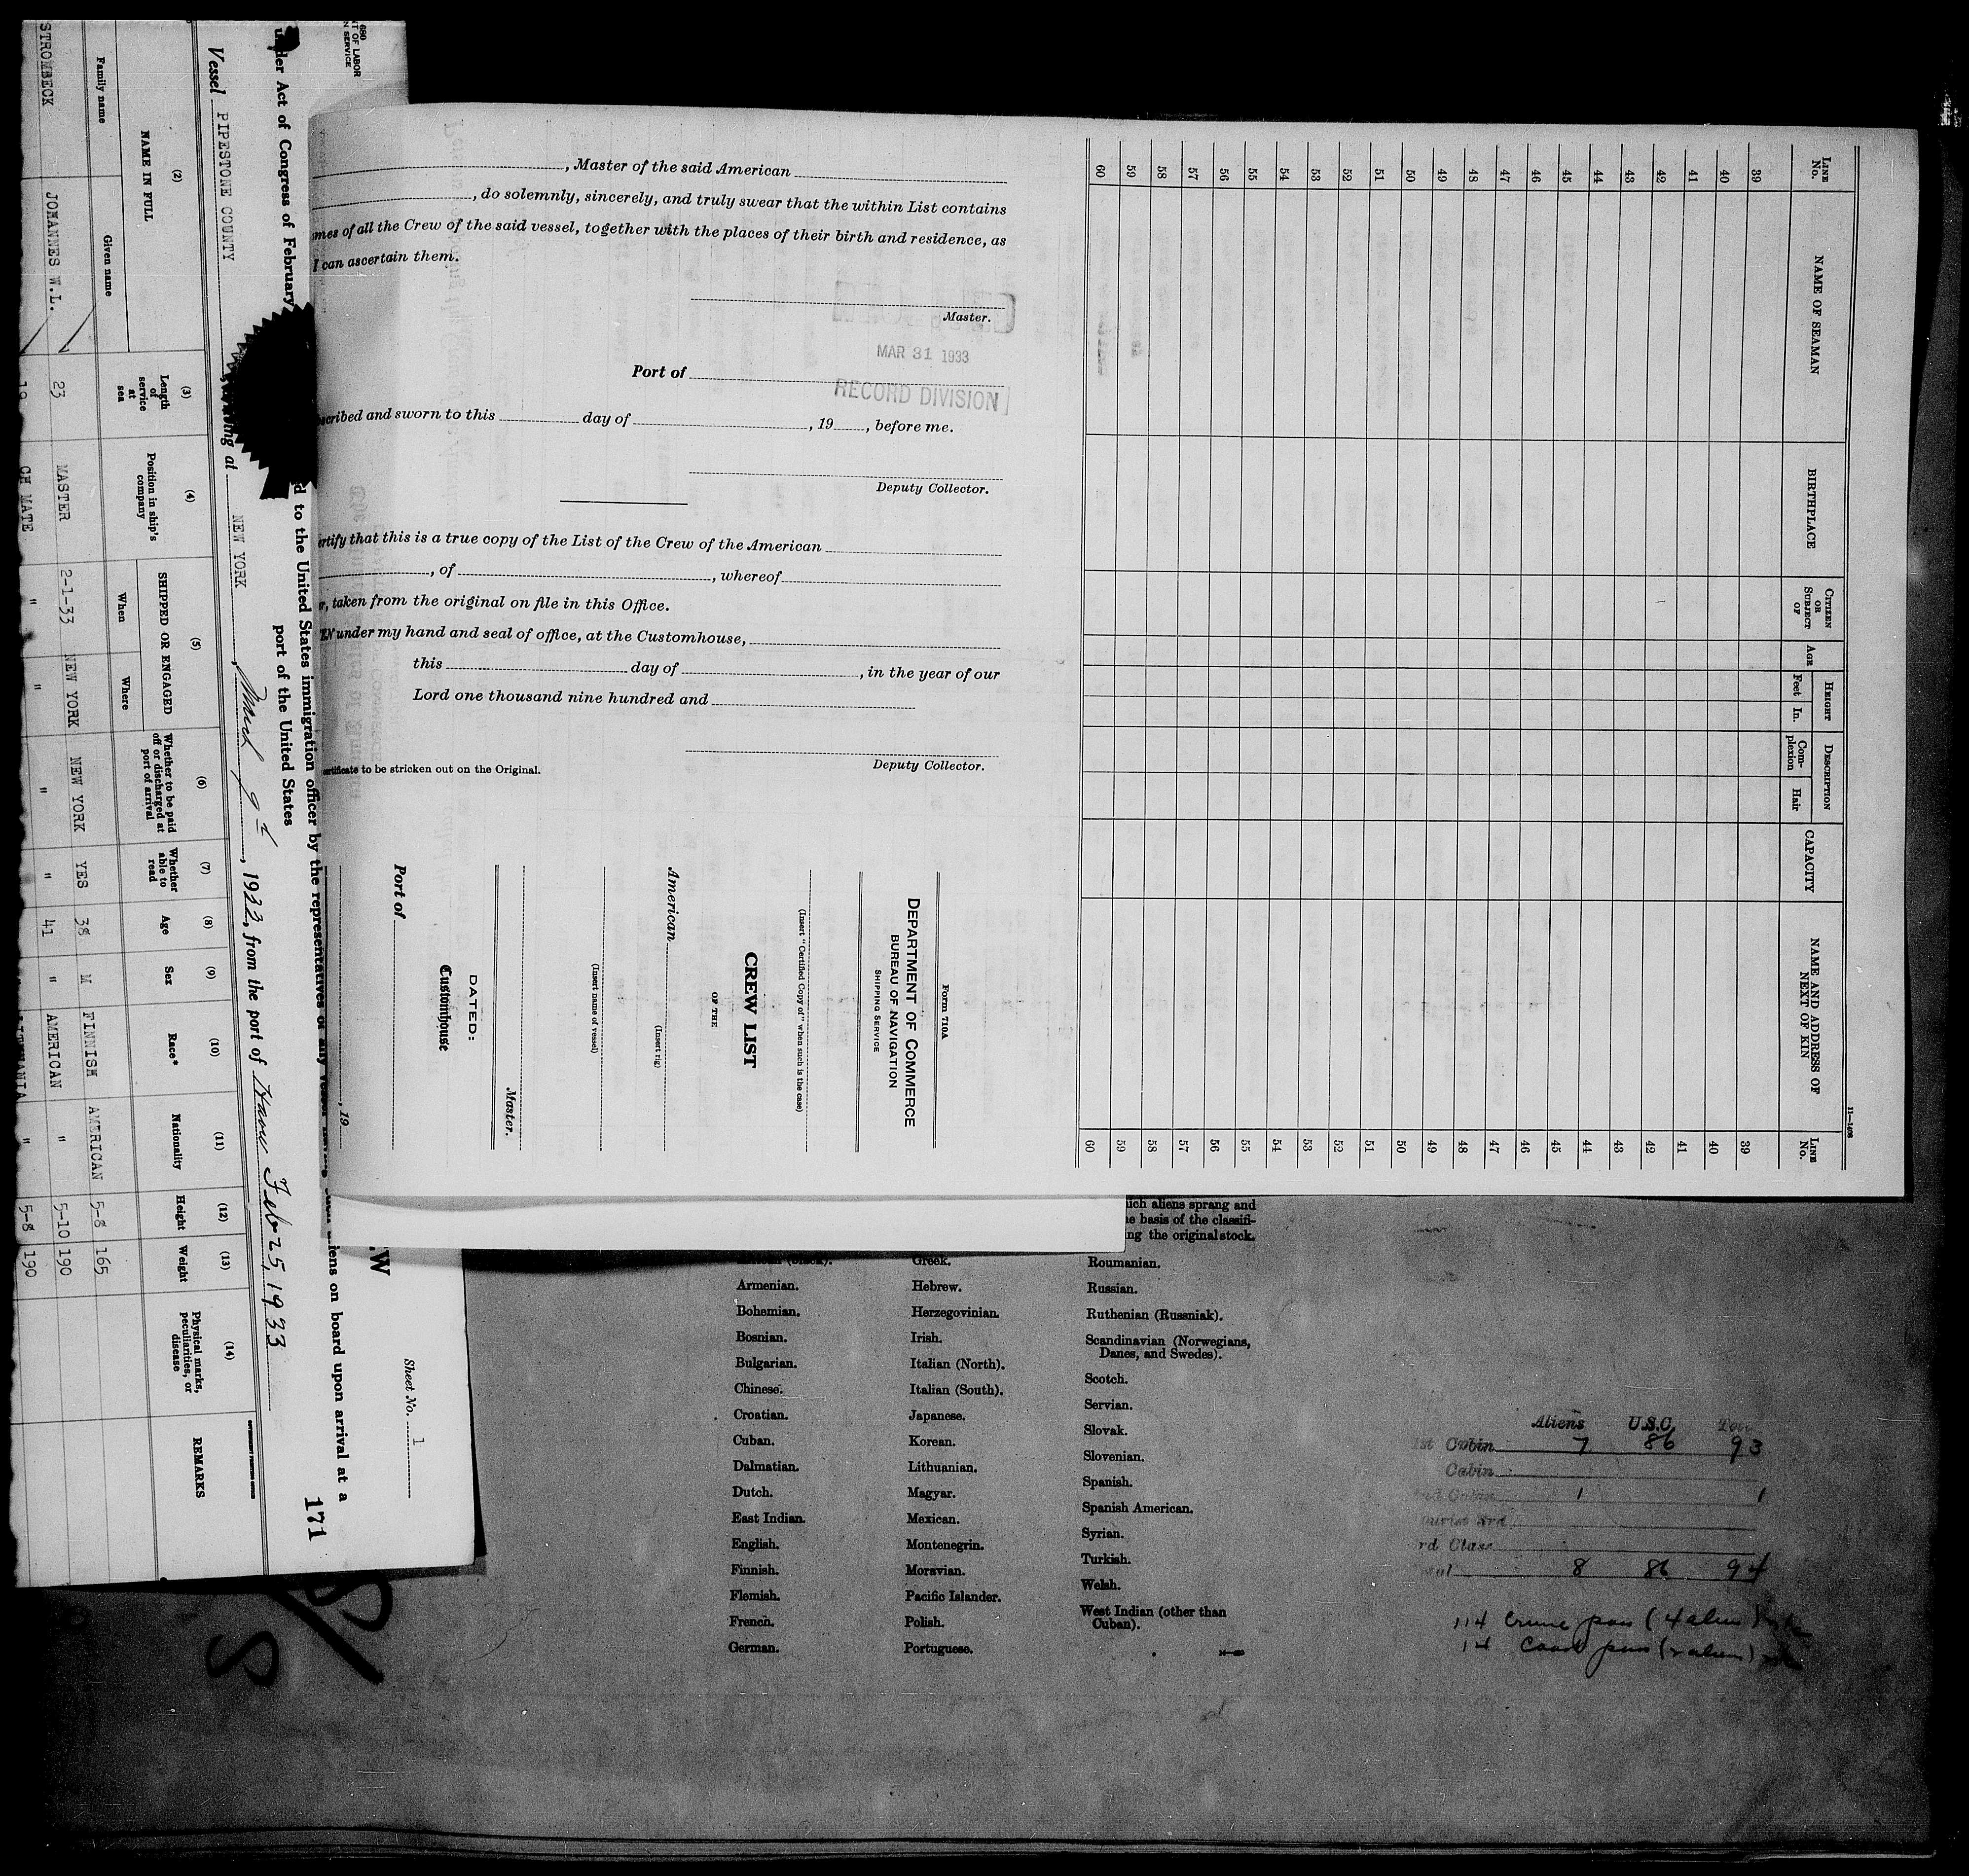 680
T OF LABOR
N SERVICE
Sheet No. 1
171
under Act of Congress of February
d to the United States immigration officer by the representatives of any vessel having such aliens on board upon arrival at a
port of the United States
Vessel PIPESTONE COUNTY, arriving at NEW YORK, March 9, 1933, from the port of Havre Feb 25, 1933
(2)
NAME IN FULL
Family name
Given name
(3)
Length of service at sea
(4)
Position in ship's company
(5)
SHIPPED OR ENGAGED
When
Where
(6)
Whether to be paid off or discharged at port of arrival
(7)
Whether able to read
(8)
Age
(9)
Sex
(10)
Race*
(11)
Nationality
(12)
Height
(13)
Weight
(14)
Physical marks, peculiarities, or disease
REMARKS
STROMBECK JOHANNES W.L. 23 MASTER 2-1-33 NEW YORK NEW YORK YES 38 M FINNISH AMERICAN 5-8 165
" " " " 41 " AMERICAN " 5-10 190
CH MATE
" 5-8 190
, Master of the said American
, do solemnly, sincerely, and truly swear that the within List contains
mes of all the Crew of the said vessel, together with the places of their birth and residence, as
I can ascertain them.
Master.
MAR 31 1933
RECORD DIVISION
Port of
scribed and sworn to this day of , 19 , before me.
Deputy Collector.
ertify that this is a true copy of the List of the Crew of the American
, of , whereof
r, taken from the original on file in this Office.
EN under my hand and seal of office, at the Customhouse,
this day of , in the year of our
Lord one thousand nine hundred and
Deputy Collector.
ertificate to be stricken out on the Original.
Form 710A
DEPARTMENT OF COMMERCE
BUREAU OF NAVIGATION
SHIPPING SERVICE
(Insert "Certified Copy of" when such is the case)
CREW LIST
OF THE
American
(Insert rig)
(Insert name of vessel)
Master.
DATED:
Customhouse
Port of
, 19
11—1408
LINE No.
NAME OF SEAMAN
BIRTHPLACE
CITIZEN OR SUBJECT OF
AGE
HEIGHT
Feet
In.
DESCRIPTION
Complexion
Hair
CAPACITY
NAME AND ADDRESS OF NEXT OF KIN
LINE No.
39 39
40 40
41 41
42 42
43 43
44 44
45 45
46 46
47 47
48 48
49 49
50 50
51 51
52 52
53 53
54 54
55 55
56 56
57 57
58 58
59 59
60 60
ich aliens sprang and
e basis of the classifi-
ng the original stock.
Armenian.
Bohemian.
Bosnian.
Bulgarian.
Chinese.
Croatian.
Cuban.
Dalmatian.
Dutch.
East Indian.
English.
Finnish.
Flemish.
French.
German.
Greek.
Hebrew.
Herzegovinian.
Irish.
Italian (North).
Italian (South).
Japanese.
Korean.
Lithuanian.
Magyar.
Mexican.
Montenegrin.
Moravian.
Pacific Islander.
Polish.
Portuguese.
Roumanian.
Russian.
Ruthenian (Russniak).
Scandinavian (Norwegians,
Danes, and Swedes).
Scotch.
Servian.
Slovak.
Slovenian.
Spanish.
Spanish American.
Syrian.
Turkish.
Welsh.
West Indian (other than
Cuban).
Aliens U.S.C.
1st Cabin 7 86 93
Cabin
nd Cabin 1 1
ourist 3rd
rd Class
8 86 94
114 Cruise pass (4 alien)
14